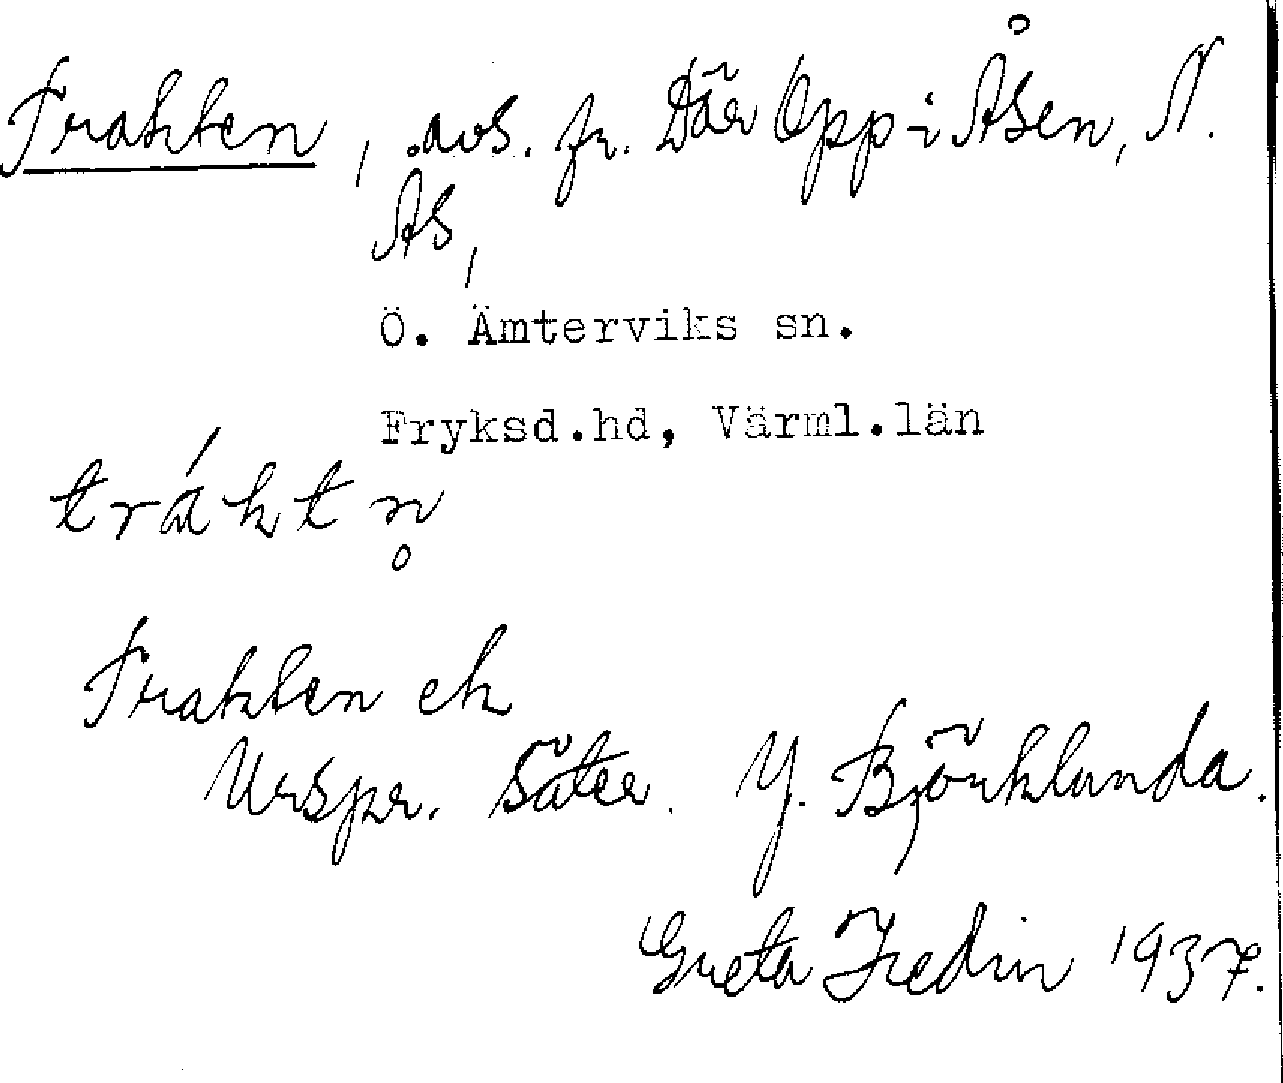 Trakten, avs. fr. Där Opp i Åsen, N.
Ås,
Ö. Ämterviks sn.
Fryksd.hd, Värml.län
tráktn̥
Trakten ek
Urspr. säter. Y. Björklunda.
Greta Fredin 1937.